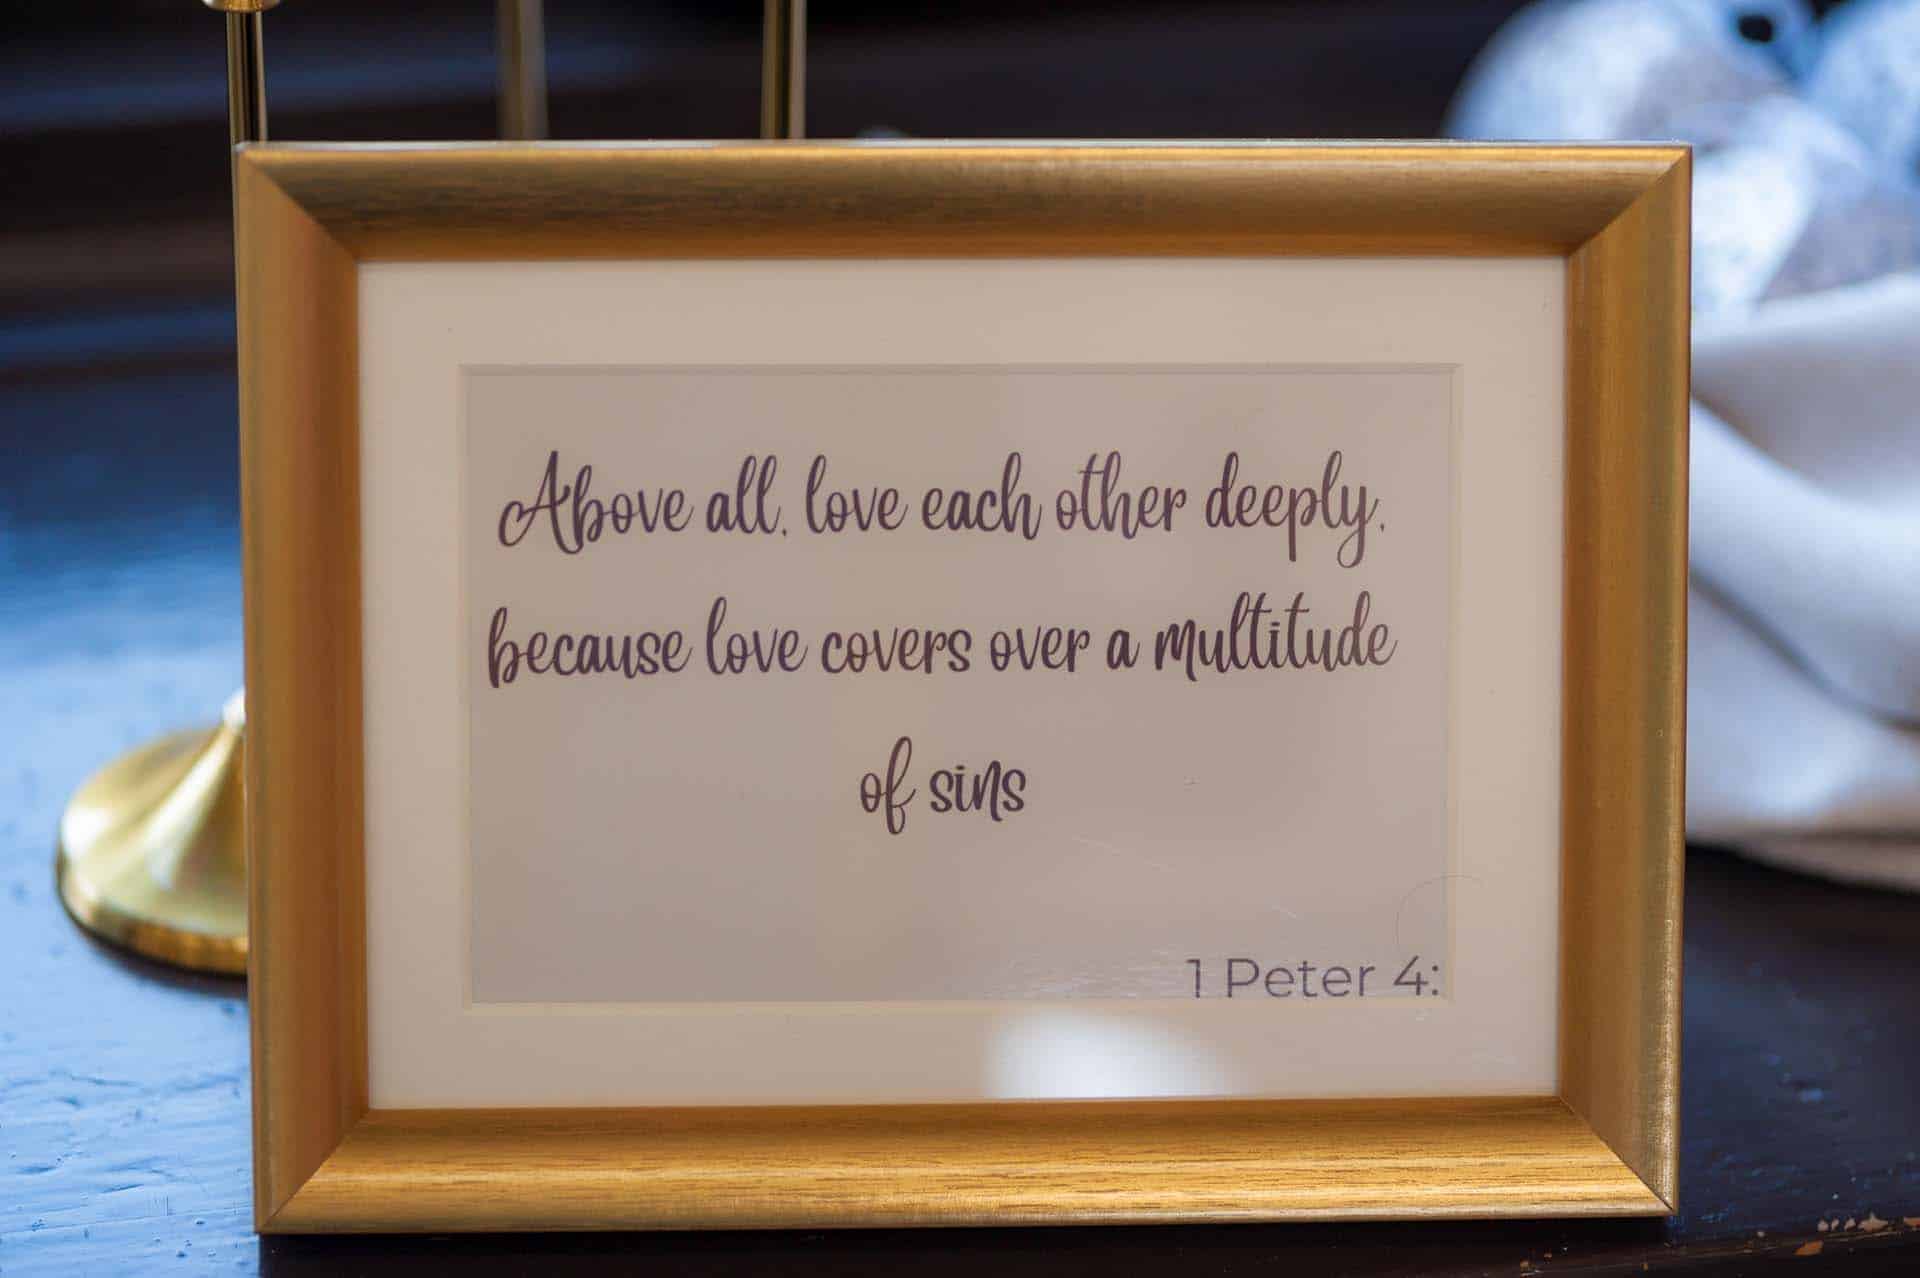 Above all, love each other deeply,
because love covers over a multitude
of sins
1 Peter 4: